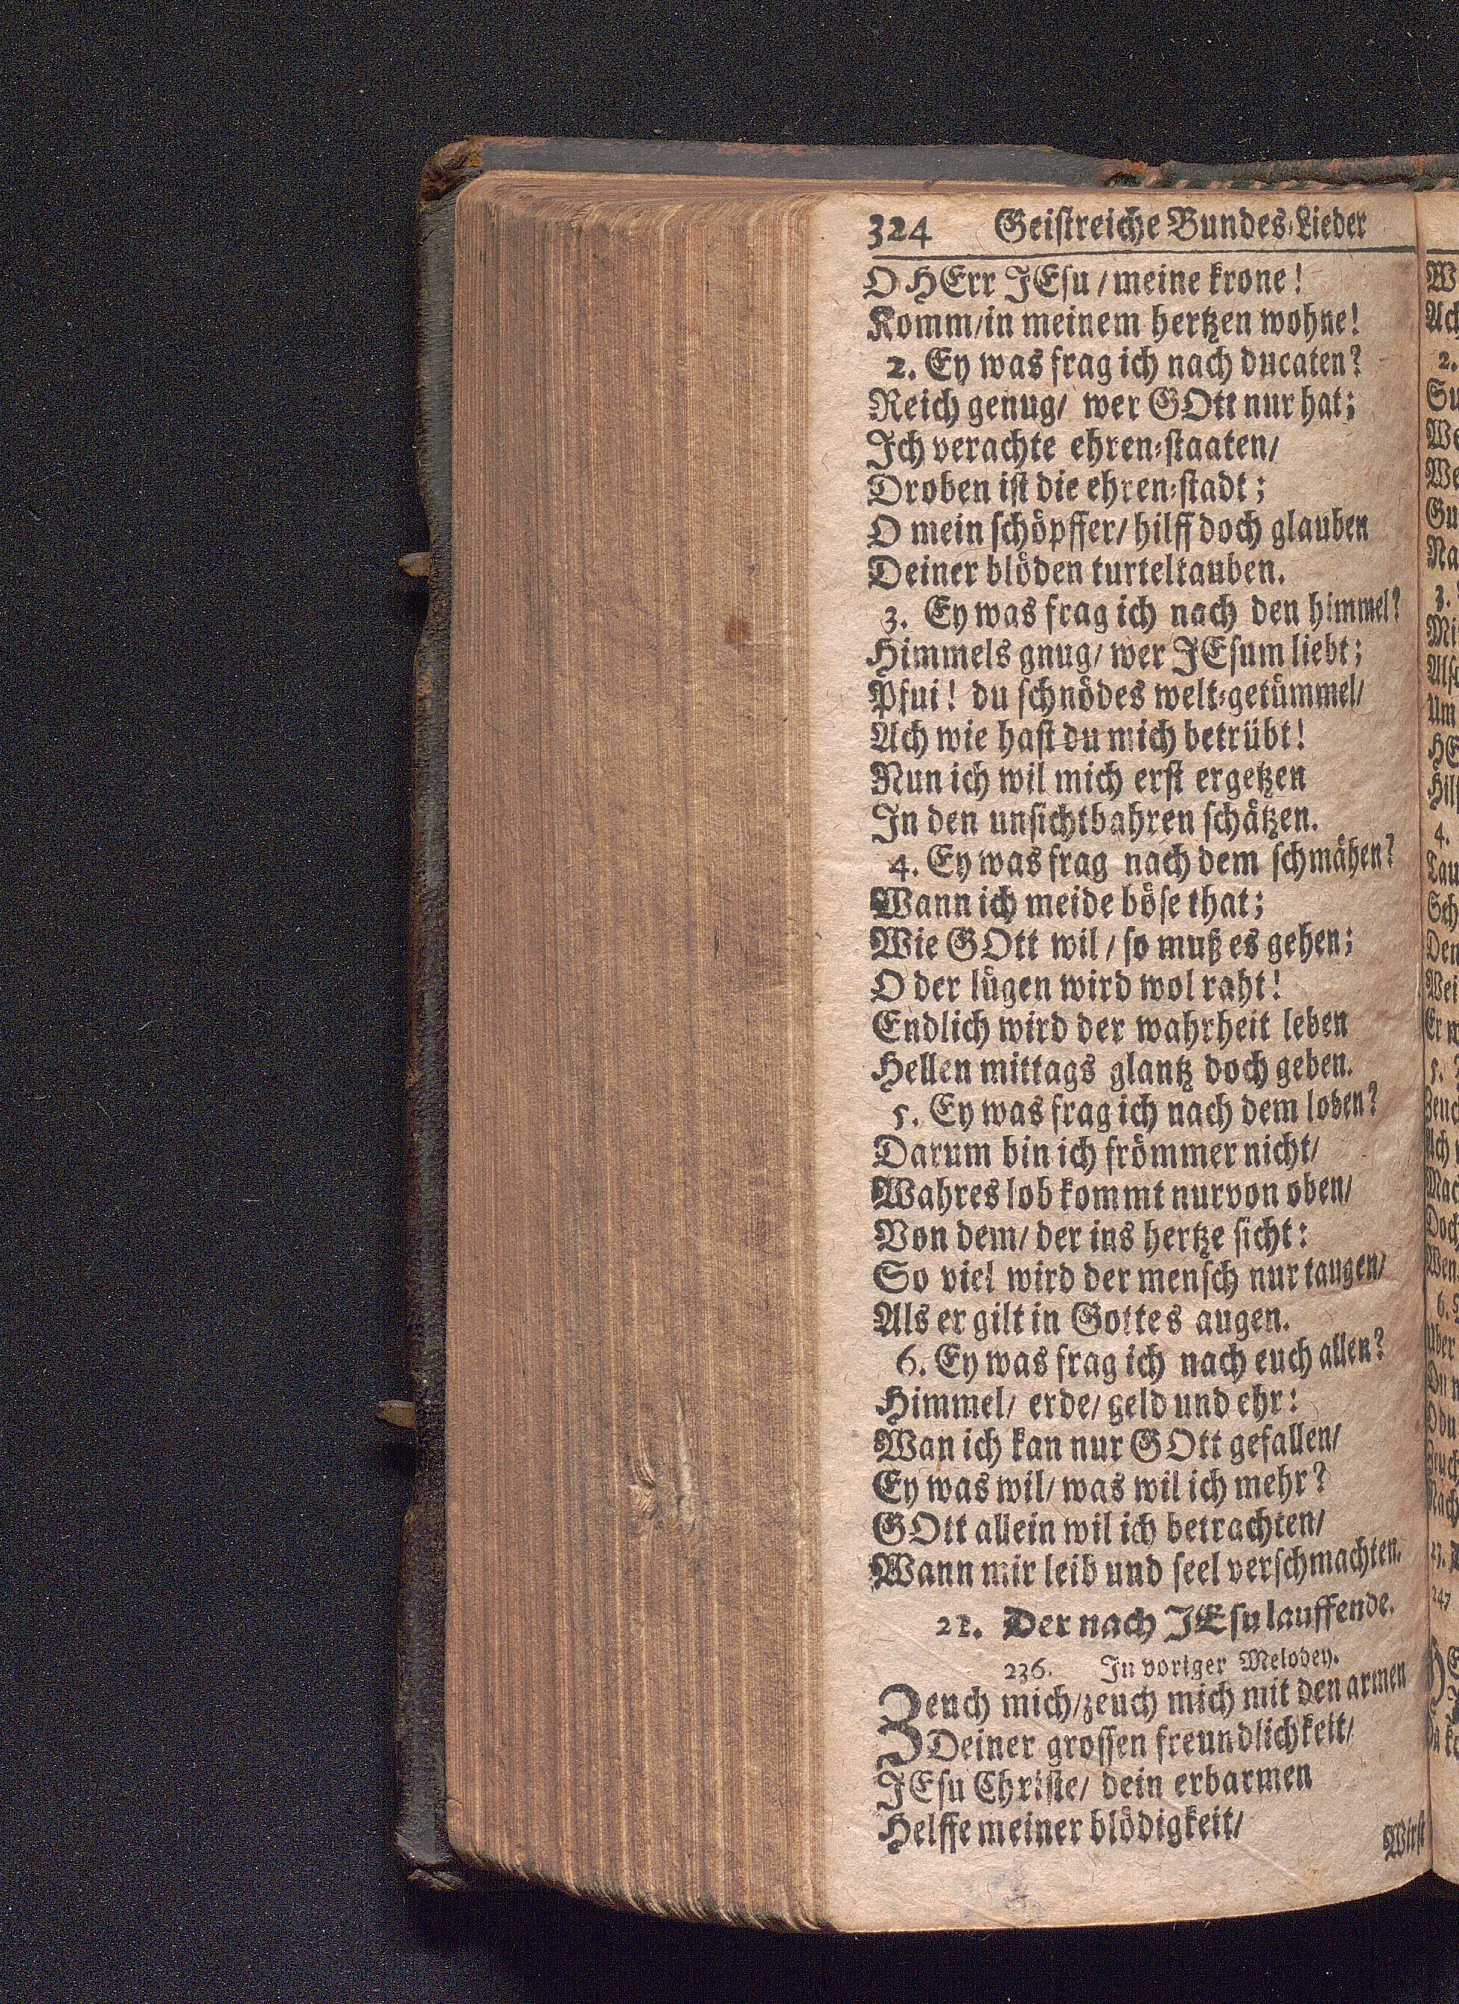 324 Geistreiche Bundes-Lieder
O HErr JEsu / meine krone!
Komm/in meinem hertzen wohne!
2. Ey was frag ich nach ducaten?
Reich genug/ wer GOtt nur hat;
Ich verachte ehren-staaten/
Droben ist die ehren-stadt;
O mein schöpffer/ hilff doch glauben
Deiner blöden turteltauben.
3. Ey was frag ich nach den himmel?
Himmels gnug/ wer JEsum liebt;
Pfui! du schnödes welt-getümmel/
Ach wie hast du mich betrübt!
Nun ich wil mich erst ergetzen
In den unsichtbahren schätzen.
4. Ey was frag nach dem schmähen?
Wann ich meide böse that;
Wie GOtt wil / so muß es gehen;
O der lügen wird wol raht!
Endlich wird der wahrheit leben
Hellen mittags glantz doch geben.
5. Ey was frag ich nach dem loben?
Darum bin ich frömmer nicht/
Wahres lob kommt nur von oben/
Von dem/ der ins hertze sicht:
So viel wird der mensch nur taugen/
Als er gilt in Gottes augen.
6. Ey was frag ich nach euch allen?
Himmel/ erde/ geld und ehr:
Wan ich kan nur GOtt gefallen/
Ey was wil/ was wil ich mehr?
GOtt allein wil ich betrachten/
Wann mir leib und seel verschmachten.
21. Der nach JEsu lauffende.
236. In voriger Melodey.
Zeuch mich/zeuch mich mit den armen
Deiner grossen freundlichkeit/
JEsu Christe/ dein erbarmen
Helffe meiner blödigkeit/
Wirst